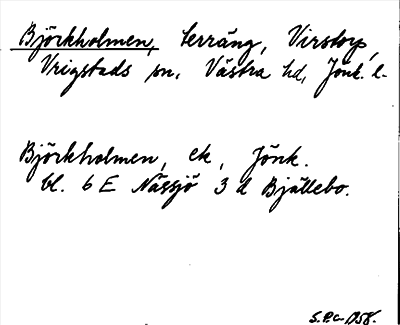 Björkholmen, terräng, Virstorp,
Vrigstads sn, Västra hd, Jönk. l.
Björkholmen, ek, Jönk.
bl. 6 E Nässjö 3 d Bjällebo.
S.P.G. 1958.